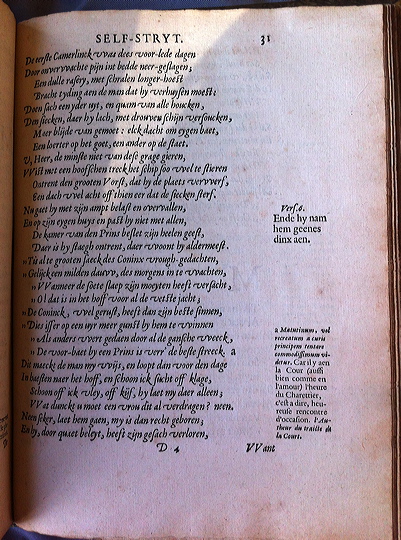 SELF-STRYT. 31
De eerste Camerlinck vvas dees voor-lede dagen
Door onvervvachte pijn int bedde neer-geslagen;
Een dulle rasery, met schralen longer-hoest
Bracht tyding aen de man dat hy verhuysen moest:
Doen sach een yder uyt, en quam van alle houcken,
Den siecken, daer hy lach, met drouven schijn versoucken,
Maer blijde van gemoet: elck dacht om eygen baet,
Een loerter op het goet, een ander op de staet.
V, Heer, de minste niet van dese grage gieren,
VVist met een hoofschen treck het schip soo vvel te stieren
Ontrent den grooten Vorst, dat hy de plaets vervverf,
Een dach vvel acht off thien eer dat de siecken sterf.
Nu gaet hy met zijn ampt belast en overvallen,
En op zijn eygen huys en past hy niet met allen,
De kamer van den Prins beslet zijn heelen geest,
Daer is hy staegh ontrent, daer vvoont hy aldermeest.
„ Tis al te grooten saeck des Coninx vrough-gedachten,
„ Gelijck een milden dauvv, des morgens in te vvachten,
„ VVanneer de soete slaep zijn moeyten heeft versacht,
„ Ol dat is in het hoff voor al de vetste jacht;
„ De Coninck, vvel gerust, heeft dan zijn beste sinnen,
„ Dies isser op een uyr meer gunst by hem te vvinnen
„ Als anders vvert gedaen door al de gansche vveeck,
„ De voor-baet by een Prins is verr' de beste streeck. a
Dit maeckt de man my vvijs, en loopt dan voor den dage
In haesten naer het hoff, en schoon ick sucht off klage,
Schoon off ick vley, off kijf, hy laet my daer alleen;
VVat dunckt u moet een vrou dit al verdragen? neen.
Neen seker, laet hem gaen, my is dan recht geboren;
En hy, door quaet beleyt, heeft zijn gesach verloren,
D 4 VVant
Vers. 6.
Ende hy nam
hem geenes
dinx aen.
a Matutinum, vel
recreatum a curis
principem tentare
commodissimum vi-
detur. Car il y aen
la Cour (aussi
bien comme en
l'amour) l'heure
du Charettier,
c'est a dire, heu-
reuse rencontre
d'occasion. l'Au-
theur du traitte de
la Court.